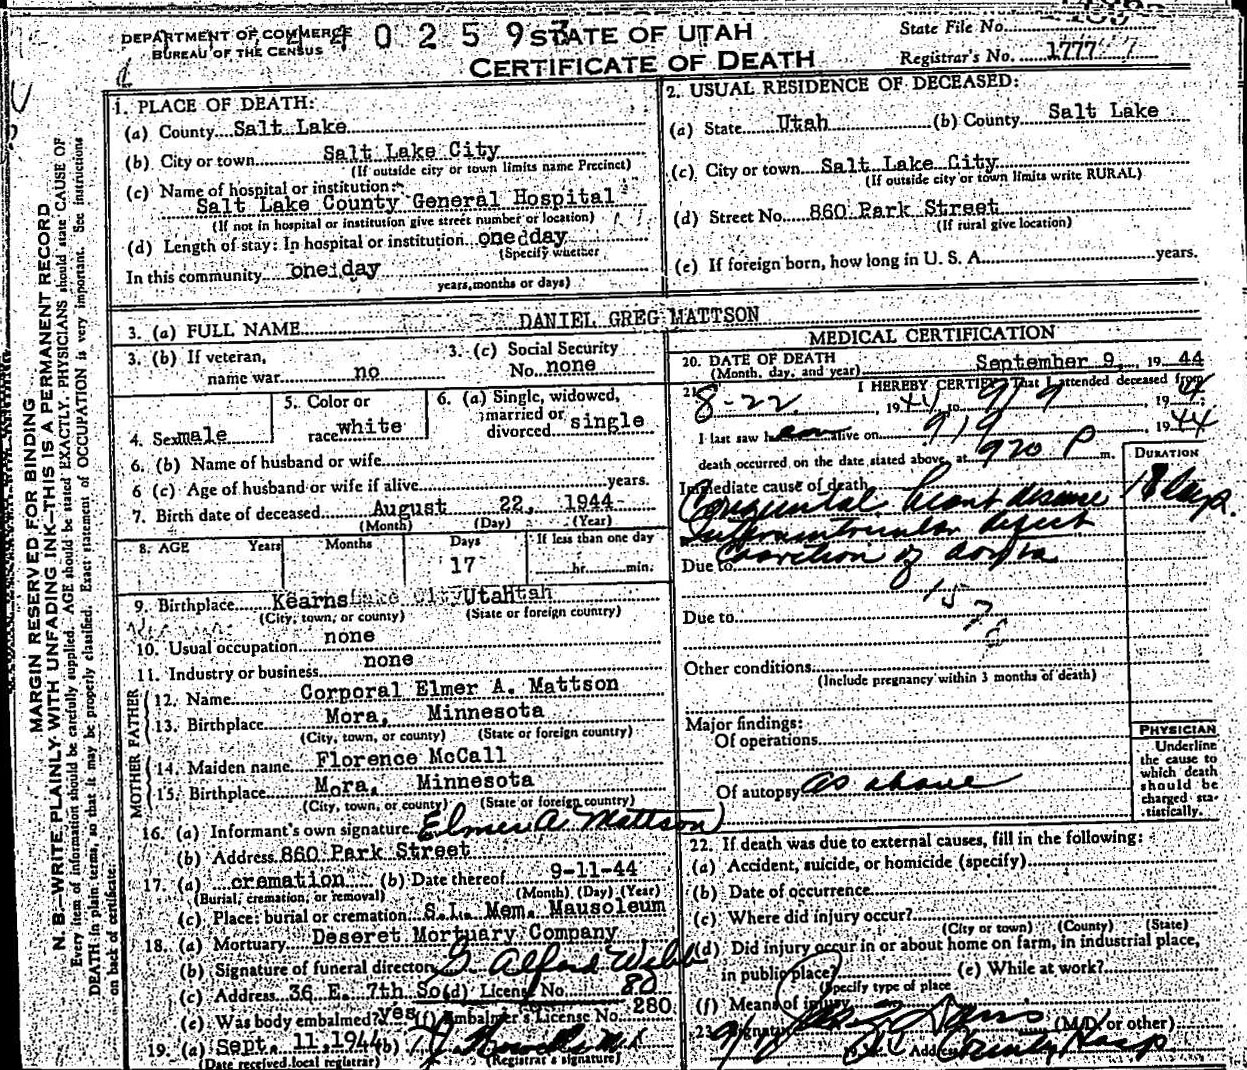 DEPARTMENT OF COMMERCE
BUREAU OF THE CENSUS
4 0 2 5 9 3 STATE OF UTAH
CERTIFICATE OF DEATH
State File No.
Registrar's No. 1777
MARGIN RESERVED FOR BINDING
N. B.—WRITE PLAINLY WITH UNFADING INK—THIS IS A PERMANENT RECORD
Every item of information should be carefully supplied. AGE should be stated EXACTLY. PHYSICIANS should state CAUSE OF
DEATH in plain terms, so that it may be properly classified. Exact statement of OCCUPATION is very important. See instructions
on back of certificate.
1. PLACE OF DEATH:
(a) County Salt Lake
(b) City or town Salt Lake City
(If outside city or town limits name Precinct)
(c) Name of hospital or institution:
Salt Lake County General Hospital
(If not in hospital or institution give street number or location)
(d) Length of stay: In hospital or institution one day
(Specify whether
In this community one day
years, months or days)
2. USUAL RESIDENCE OF DECEASED:
(a) State Utah (b) County Salt Lake
(c) City or town Salt Lake City
(If outside city or town limits write RURAL)
(d) Street No. 860 Park Street
(If rural give location)
(e) If foreign born, how long in U. S. A. years.
3. (a) FULL NAME DANIEL GREG MATTSON
3. (b) If veteran,
name war no
3. (c) Social Security
No. none
4. Sex male
5. Color or
race white
6. (a) Single, widowed,
married or
divorced single
6. (b) Name of husband or wife
6 (c) Age of husband or wife if alive years.
7. Birth date of deceased August 22, 1944
(Month) (Day) (Year)
8. AGE Years Months Days If less than one day
17 hr. min.
9. Birthplace Kearns Utah
(City, town, or county) (State or foreign country)
10. Usual occupation none
11. Industry or business none
FATHER
12. Name Corporal Elmer A. Mattson
13. Birthplace Mora, Minnesota
(City, town, or county) (State or foreign country)
MOTHER
14. Maiden name Florence McCall
15. Birthplace Mora, Minnesota
(City, town, or county) (State or foreign country)
16. (a) Informant's own signature Elmer A. Mattson
(b) Address 860 Park Street
17. (a) cremation (b) Date thereof 9-11-44
(Burial, cremation, or removal) (Month) (Day) (Year)
(c) Place: burial or cremation S.L. Mem. Mausoleum
18. (a) Mortuary Deseret Mortuary Company
(b) Signature of funeral director G. Alford Webb
(c) Address 36 E. 7th So (d) License No. 80
(e) Was body embalmed? yes (f) Embalmer's License No. 280
19. (a) Sept. 11, 1944 (b)
(Date received local registrar) (Registrar's signature)
MEDICAL CERTIFICATION
20. DATE OF DEATH
(Month, day, and year) September 9, 1944
21. I HEREBY CERTIFY, That I attended deceased from
8-22, 1944, to 9/9 1944
I last saw him alive on 9/9, 1944
death occurred on the date stated above, at 920 P m.
DURATION
Immediate cause of death
Congenital heart disease 18 days.
Interventricular defect
Due to Coarction of aorta
Due to
Other conditions
(Include pregnancy within 3 months of death)
Major findings:
Of operations
Of autopsy as above
PHYSICIAN
Underline
the cause to
which death
should be
charged sta-
tistically.
22. If death was due to external causes, fill in the following:
(a) Accident, suicide, or homicide (specify)
(b) Date of occurrence
(c) Where did injury occur?
(City or town) (County) (State)
(d) Did injury occur in or about home on farm, in industrial place,
in public place? (e) While at work?
(Specify type of place
(f) Means of injury
23. Signature (M.D. or other)
Address County Hosp